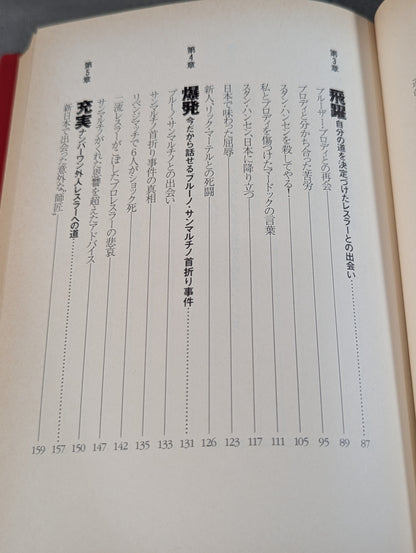 第3章
飛躍 自分の道を決定づけたレスラーとの出会い 87
ブルーザー・ブロディとの再会 89
ブロディと分かち合った苦労 95
スタン・ハンセンを殺してやる! 105
私とブロディを傷つけたマードックの言葉 111
スタン・ハンセン、日本に降り立つ 117
日本で味わった屈辱 123
新人、リック・マーテルとの死闘 126
第4章
爆発 今だから話せるブルーノ・サンマルチノ首折り事件 131
ブルーノ・サンマルチノとの出会い 133
サンマルチノ首折り事件の真相 135
リベンジマッチで6人がショック死 142
二流レスラーがこぼしたプロレスラーの悲哀 147
サンマルチノがくれた恩讐を超えたアドバイス 150
第5章
充実 ナンバーワン外人レスラーへの道 157
新日本で出会った意外な“師匠” 159